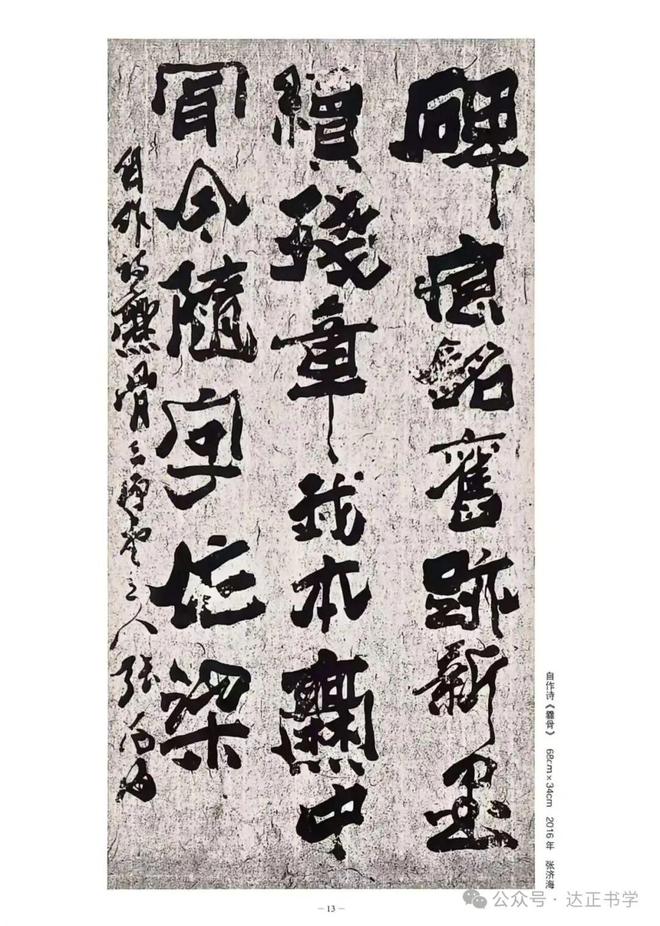 碑痕銘舊跡新墨
續殘章我本爨中
骨今隨字作梁
自作詩爨骨三堂主人張濟海
自作诗《爨骨》 68cm×34cm 2016年 张济海
– 13 –
公众号 · 达正书学